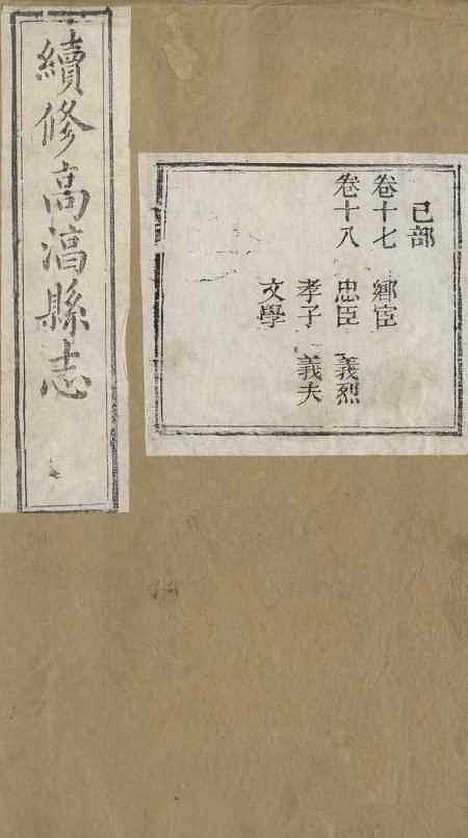 續修高淳縣志
己部
卷十七 鄉宦
卷十八 忠臣 義烈
孝子 義夫
文學